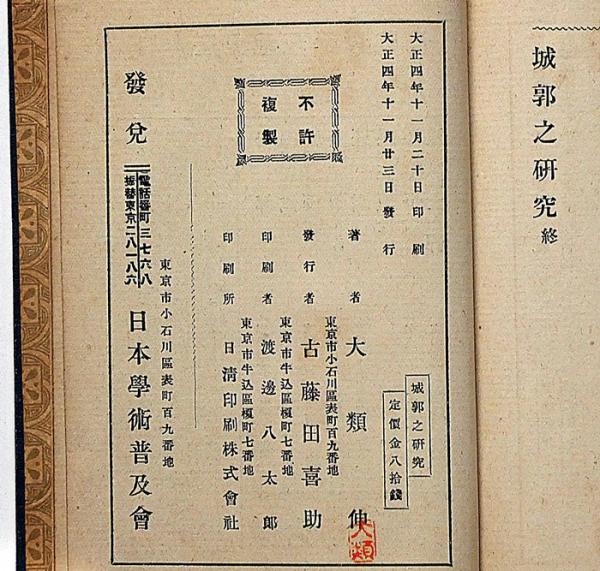 城郭之研究 終
大正四年十一月二十日印刷
大正四年十一月廿三日發行
不許
複製
城郭之研究
定價金八拾錢
著者 大類伸
大類
東京市小石川區表町百九番地
發行者 古藤田喜助
東京市牛込區榎町七番地
印刷者 渡邊八太郎
東京市牛込區榎町七番地
印刷所 日清印刷株式會社
東京市小石川區表町百九番地
發兌 日本學術普及會
電話番町三七六八
振替東京二八一八六